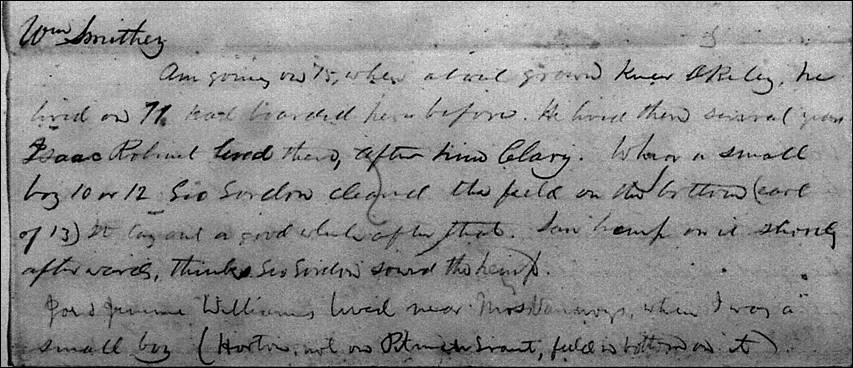 Wm Smithey
Am going on 75, when about grown knew O Reley, he
lived on 71 had boarded here before. He lived there several years
Isaac Robinet lived there, after him Clary. When a small
boy 10 or 12 Geo Gordon cleared the field on the bottom (east
of 13) It lay out a good while after that. Saw hemp on it shortly
afterwards, thinks Geo Gordon sowed the hemp.
Jas Williams lived near when I was a
small boy (Horton, not on Grant, field in bottom on it).